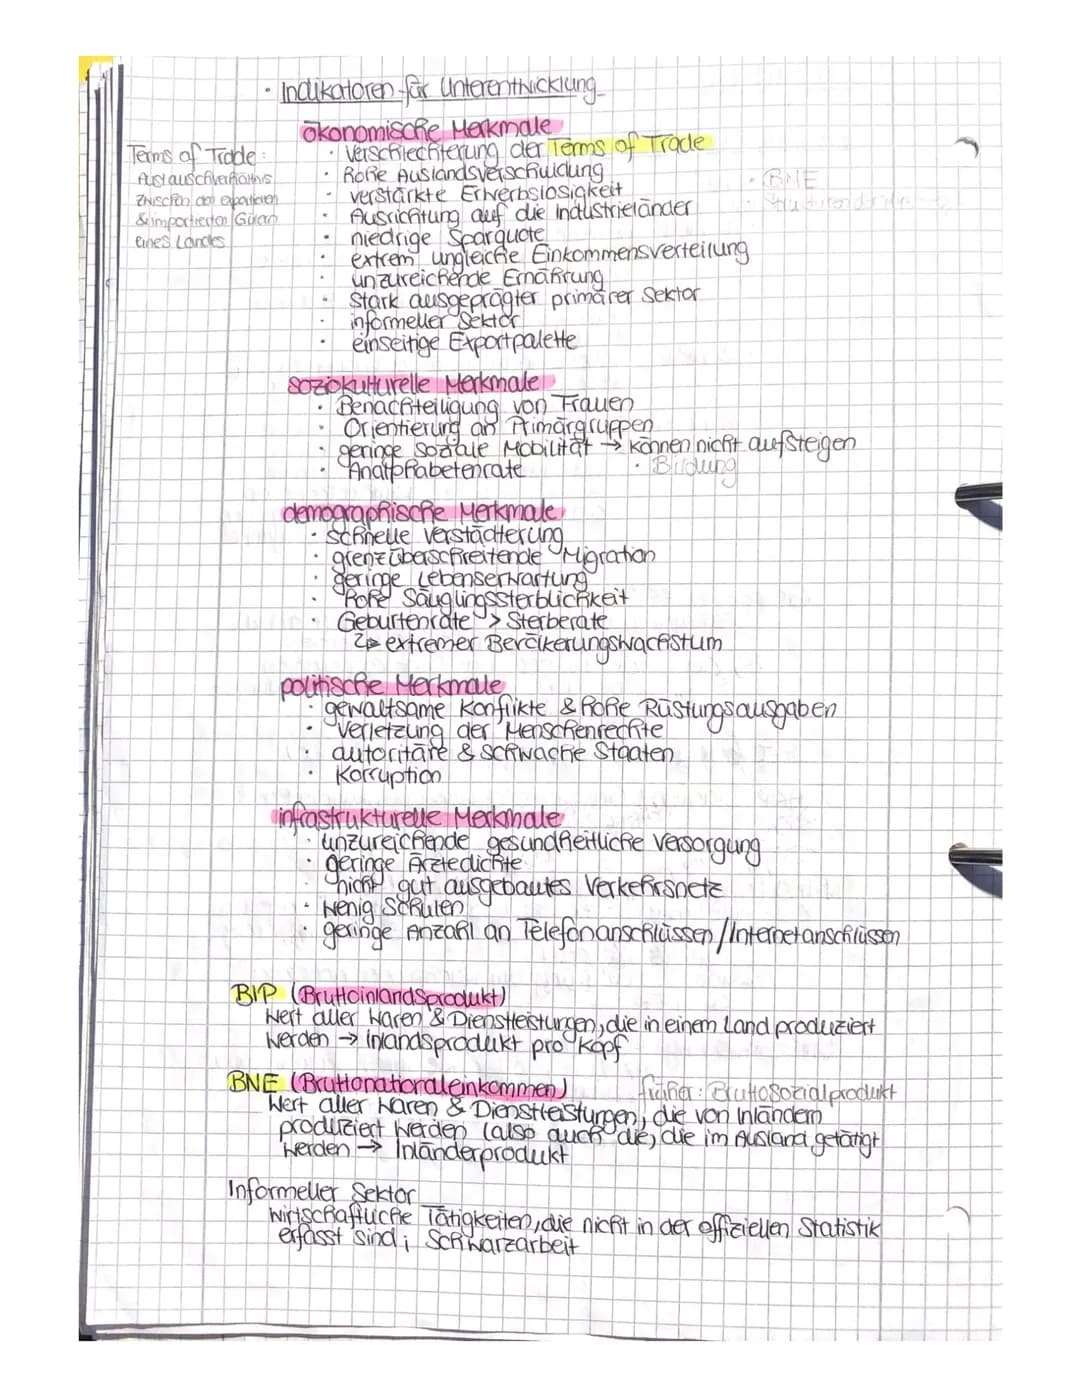 · Indikatoren für Unterentwicklung
ökonomische Merkmale
Terms of Trade:
Austauschverhältnis
zwischen den exportierten
& importierten Gütern
eines Landes
· Verschlechterung der Terms of Trade
· hohe Auslandsverschuldung
· verstärkte Erwerbslosigkeit
· BNE
· Ausrichtung auf die Industrieländer
· niedrige Sparquote
· extrem ungleiche Einkommensverteilung
· unzureichende Ernährung
· stark ausgeprägter primärer Sektor
· informeller Sektor
· einseitige Exportpalette
soziokulturelle Merkmale
· Benachteiligung von Frauen
· Orientierung an Primärgruppen
· geringe soziale Mobilität → können nicht aufsteigen
· Analphabetenrate
· Bildung
demographische Merkmale
· schnelle Verstädterung
· grenzüberschreitende Migration
· geringe Lebenserwartung
· hohe Säuglingssterblichkeit
· Geburtenrate > Sterberate
↳ extremer Bevölkerungswachstum
politische Merkmale
· gewaltsame Konflikte & hohe Rüstungsausgaben
· Verletzung der Menschenrechte
· autoritäre & schwache Staaten
· Korruption
infrastrukturelle Merkmale
· unzureichende gesundheitliche Versorgung
· geringe Ärztedichte
· nicht gut ausgebautes Verkehrsnetz
· wenig Schulen
· geringe Anzahl an Telefonanschlüssen/Internetanschlüssen
BIP (Bruttoinlandsprodukt)
Wert aller Waren & Dienstleistungen, die in einem Land produziert
werden → Inlandsprodukt pro Kopf
BNE (Bruttonationaleinkommen) früher: Bruttosozialprodukt
Wert aller Waren & Dienstleistungen, die von Inländern
produziert werden (also auch die, die im Ausland getätigt
werden → Inländerprodukt
Informeller Sektor
wirtschaftliche Tätigkeiten, die nicht in der offiziellen Statistik
erfasst sind; Schwarzarbeit